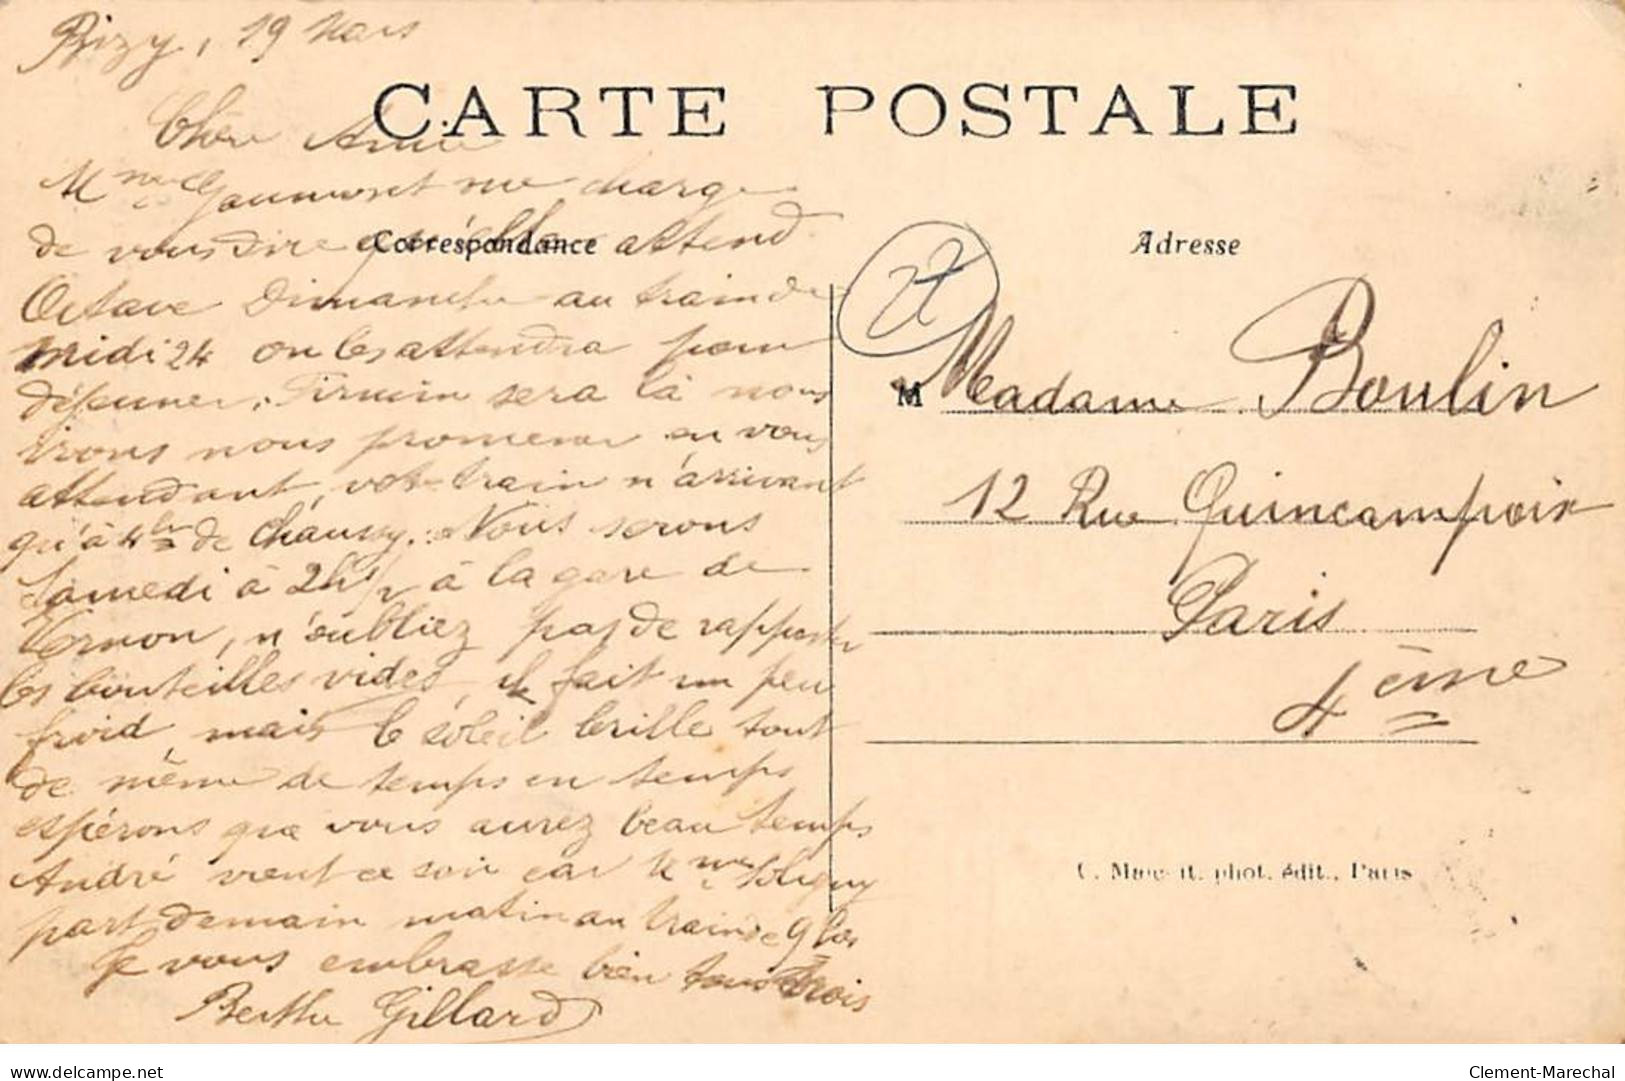 Bizy, 19 Mars
CARTE POSTALE
Chère Amie
Mme Gaumont me charge
de vous dire qu'elle attend
Correspondance
Octave Dimanche au train de
midi 24 on les attendra pour
déjeuner, Firmin sera là nous
irons nous promener en vous
attendant, votre train n'arrivant
qu'à 4 hrs de Chaussy. Nous serons
Samedi à 2h 1/2 à la gare de
Vernon, n'oubliez pas de rapporter
les bouteilles vides, il fait un peu
froid, mais le soleil brille tout
de même de temps en temps
espérons que vous aurez beau temps
André vient ce soir car Mme Soligny
part demain matin au train de 9 hrs
Je vous embrasse bien tous trois
Berthe Gillard
Adresse
M Madame Boulin
12 Rue Quincampoix
Paris
4ème
phot. édit., Paris
delcampe.net
Clement-Marechal